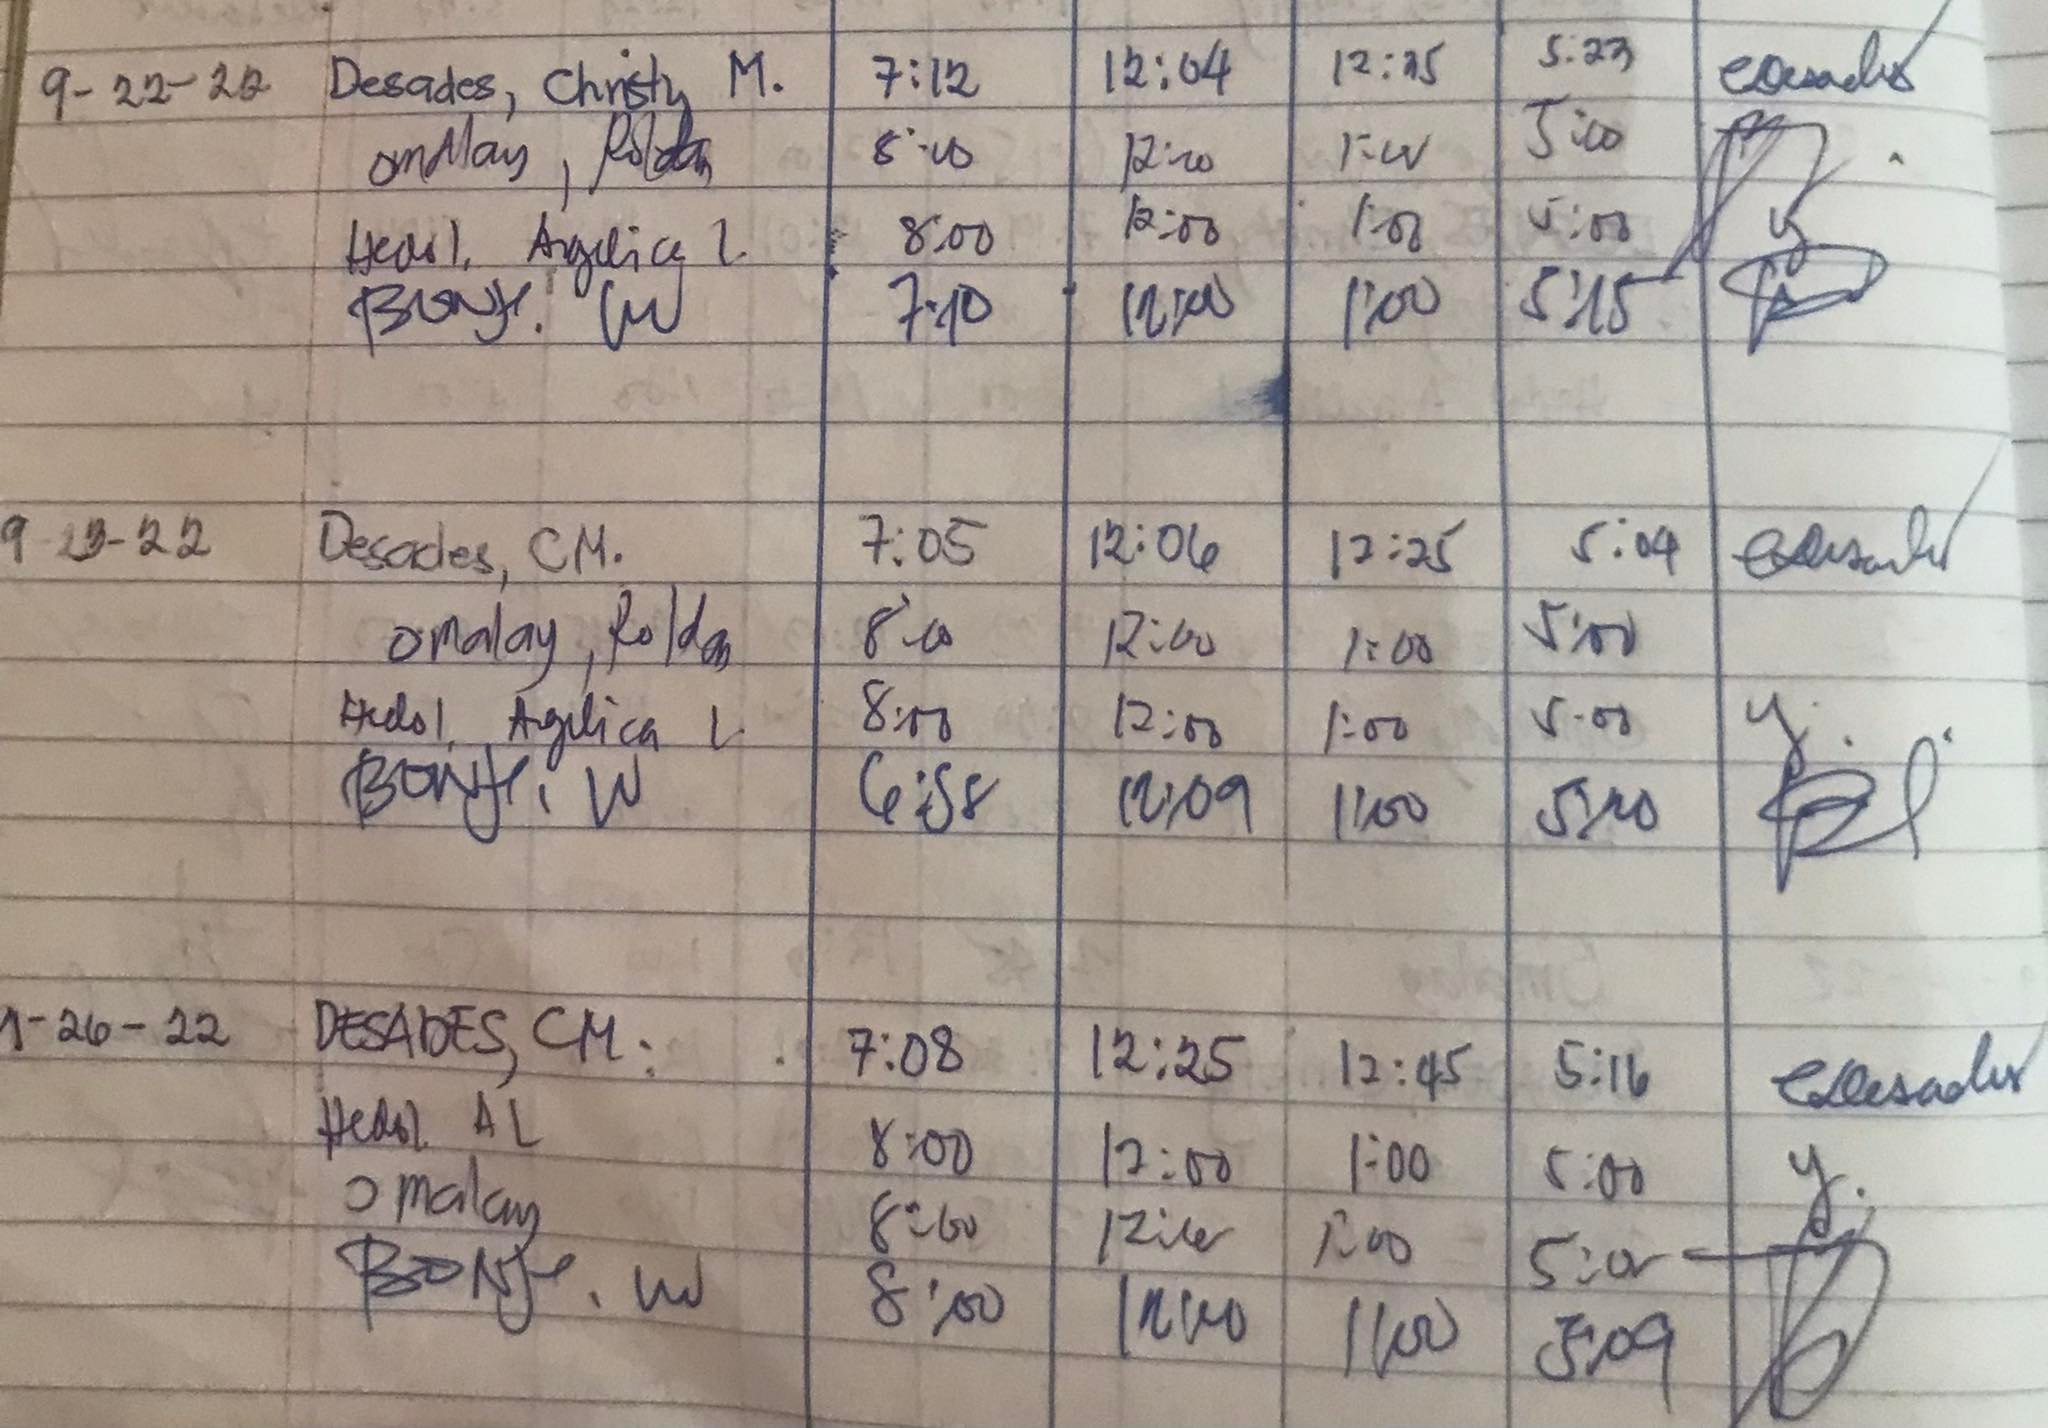 9-22-22 Desades, Christy M. 7:12 12:04 12:25 5:23 CDesades
omallay, Roldan 8:00 12:00 1:00 5:00
Hedol, Angelica L. 8:00 12:00 1:00 5:00
7:10 12:00 1:00 5:15
9-23-22 Desades, CM. 7:05 12:06 12:25 5:04 CDesades
omalay, Roldan 8:00 12:00 1:00 5:00
Hedol, Angelica L. 8:00 12:00 1:00 5:00
6:58 12:09 1:00 5:10
9-26-22 DESADES, CM. 7:08 12:25 12:45 5:16 CDesades
Hedol AL 8:00 12:00 1:00 5:00
omalay 8:00 12:00 1:00 5:00
8:00 1:00 5:09